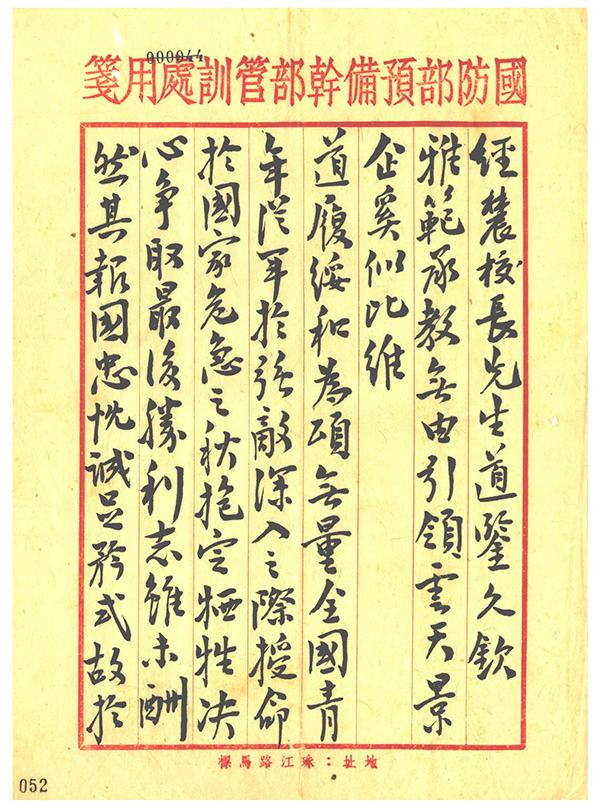 000044
國防部預備幹部管訓處用箋
經農校長先生道鑒久欽
雅範承教無由引領雲天景
企奚似比維
道履綏和為頌無量全國青
年從軍於強敵深入之際授命
於國家危急之秋抱定犧牲決
心爭取最後勝利志雖未酬
然其報國忠忱誠足矜式故於
地址：珠江路馬標
052